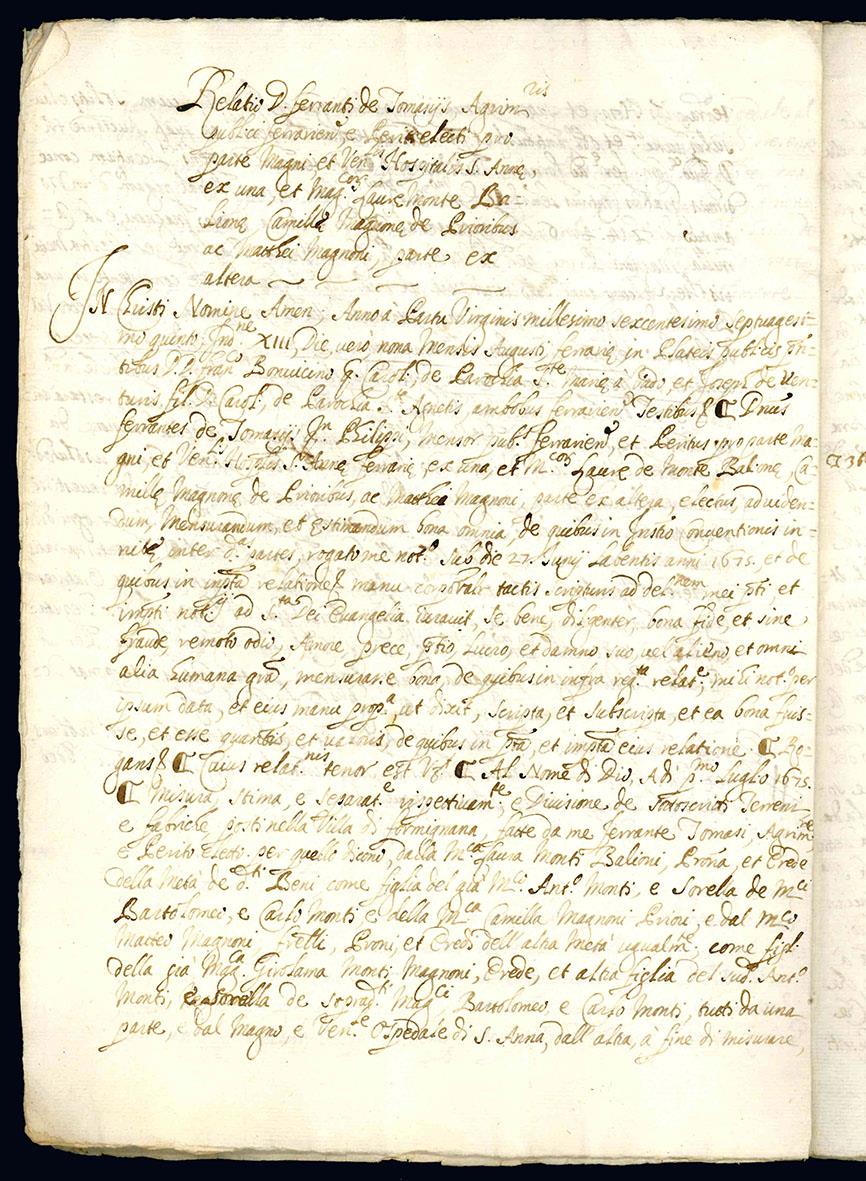 Relatio D. Ferranti de Tomasijs Agrim.ris
publici ferrarien. e Periti electi pro
parte Magni et Ven. Hospitalis S. Annę,
ex una, et Mag. Laurę Monte Ba
lionę Camillę Magnonę de Prioribus
ac Matthei Magnoni, parte ex
altera
IN Christi Nomine Amen; Anno à Partu Virginis millesimo sexcentesimo septuagesi=
mo quinto, Ind.ne XIII, Die, vero nona mensis Augusti, ferrarię in Plateis publicis
tibus D.D. Fran. Bonvicino q. Carol. de Parochia S.tę Marię à Vado, et Joseph de Ven=
turis fil. D. Carol. de Parochia S. Agnetis ambobus ferrarien. Testibus & C Dnus
ferrantes de Tomasijs Philippi, Mensor pub. ferrarien., et Peritus pro parte Ma=
gni, et Ven. S. Annę ferrarię ex una, et M. Laurę de Monte Balionę, Ca=
millę Magnonę de Prioribus, ac Matthei Magnoni, parte ex altera, electus, ad viden=
dum, Mensurandum, et ęstimandum bona omnia, de quibus in Instro Conventionis in=
nitę inter d. partes, rogato me not. sub die 27 Junij labentis anni 1675. et de
quibus in relatione & manu tactis scripturis ad mei et
not. ad S.ta Dei Evangelia iuravit, se bene, diligenter, bona fide, et sine
fraude, remoto odio, Amore, prece, lucro, et damno suo vel alieno, et omni
alia humana gra, mensurare bona, de quibus in infra relat., mihi not. per
ipsum data, et eius manu prop.a, ut dixit, scripta, et subscripta, et ea bona fuis=
se, et esse quantis, et valoris, de quibus in et eius relatione. C Ro=
gans & C Cuius relat.nis tenor est C Al Nome di Dio, Adi p.mo Luglio 1675.
C Misura, stima, e separat.e rispettivam.te, e Divisione de sottoscritti Terreni
e fabriche posti nella Villa di formignana, fatte da me ferrante Tomasi, Agrim.re
e Perito eletto per quello dicono, dalla M.ca Laura Monti Balioni, Prona, et Erede
della Metà de d.ti Beni come figlia del già M.ci Ant.o Monti, e Sorella de M.ci
Bartolomei, e Carlo Monti e della M.ca Camilla Magnoni Prioni, e dal M.co
Matteo Magnoni, frelli, Proni, et Eredi dell'altra Metà ugualm.e, come figl.
della già Mag.a Girolama Monti Magnoni, Erede, et altra figlia del sud.o Ant.o
Monti, e sorella de Mag.ci Bartolomeo, e Carlo Monti, tutti da una
parte, e dal Magno, e Ven.e Ospedale di S. Anna, dall'altra, à fine di misurare,